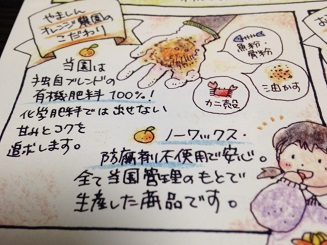 やましん
オレンジ農園の
こだわり
当園は
独自ブレンドの
有機肥料100%!
化学肥料では出せない
甘みとコクを
追求します。
魚粉・
骨粉
油かす
カニ殻
ノーワックス・
防腐剤不使用で安心。
全て当園管理のもとで
生産した商品です。